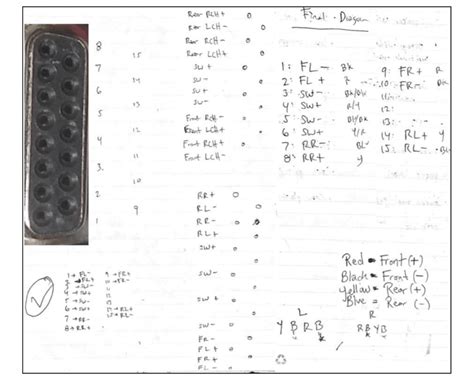 Rear RCH+
Rear LCH-
8
Rear RCH-
15
Rear LCH+
7
SW+
14
SW-
6
SW+
13
SW-
5
Front RCH-
12
Front LCH+
4
11
Front RCH+
Front LCH-
3.
10
2
RR+
9
RL-
1
RR-
RL+
SW+
SW-
SW+
SW-
FR-
FL-
FR+
FL+
Final Diagram
1: FL- Bk
2: FL+ R
3: SW- Bk/
4: SW+ R/Y
5: SW-
6: SW+ Y/R
7: RR- BL
8: RR+ Y
9: FR+ R
10: FR- Bk
11:
12:
13:
14: RL+ Y
15: RL- BL
Red = Front (+)
Black = Front (-)
Yellow = Rear (+)
Blue = Rear (-)
L
R
Y B R B
R B Y B
k
k
1 → FL-
2 → FL+
3 → SW-
4 → SW+
5 → SW-
6 → SW+
7 → RR-
8 → RR+
9 → FR+
10 → FR-
14 → RL+
15 → RL-